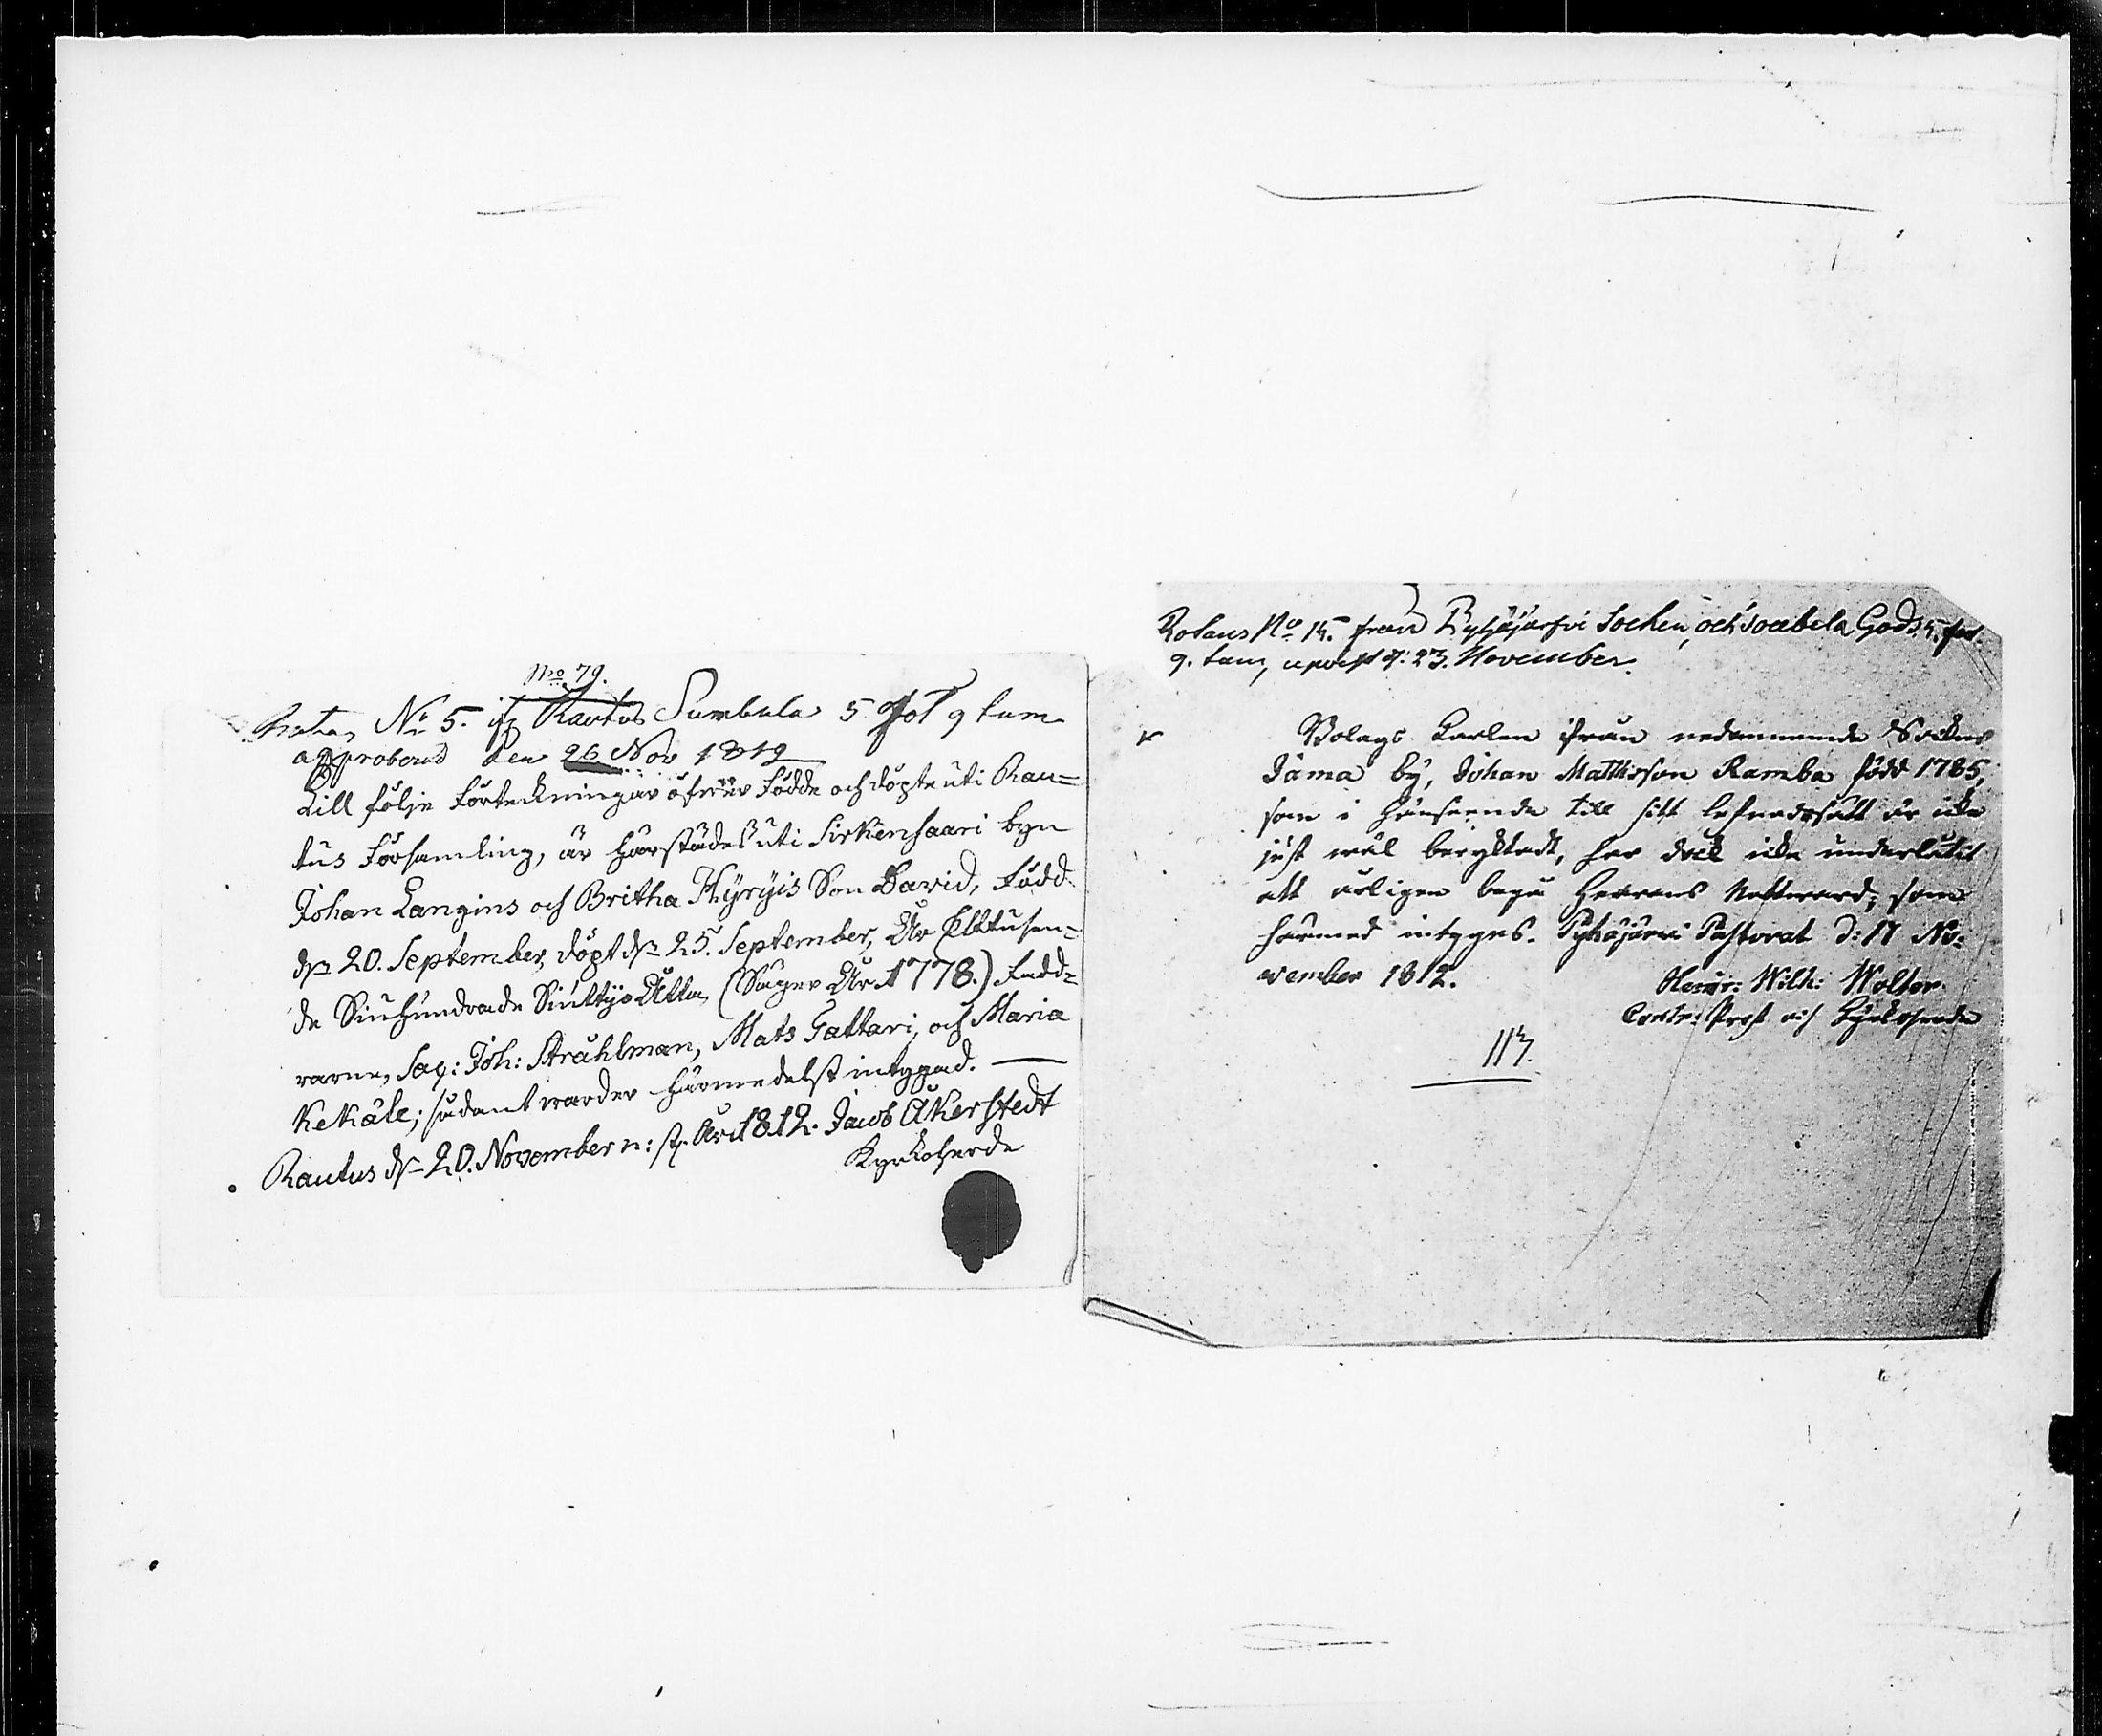 No 79.
Rotan No 5. ifr Rautus Sumbula 5 fot 9 tum
approberad den 26 Nov 1812
Till följe Förteckningar öfwer Födde och döpte uti Rau=
tus Församling, är härstädes uti Sirkensaari byn
Johan Langins och Britha Hyryis Son David, född
dn 20. September, döpt dn 25. September, År Ettusen=
de Siuhundrade Siuttijo Åtta, (Säger År 1778.) Fadd=
rarne, Sag: Joh: Stråhlman, Mats Tattari, och Maria
Kekäle; sådant warder härmedelst intygad.
Rautus dn 20. November n: st. År 1812. Jacob Åkerstedt
Kyrkoherde
Rotans No 15. från Pyhäjärfvi Sochen, och Godset 5. fot
9. tum, d: 23. November.
Bolags Karlen ifrån nedannämnde Sokns
Jäma by, Johan Mattsson Ramba född 1785,
som i hänseende till sitt lefnadssätt är icke
just wäl beryktadt, har dock icke underlåtit
att årligen begå Herrans Nattward; som
härmed intygas. Pyhäjärwi Pastorat d: 17 No=
vember 1812.
Henr: Wilh: Wolter
Contr: Prost och Kyrkoherde
113.